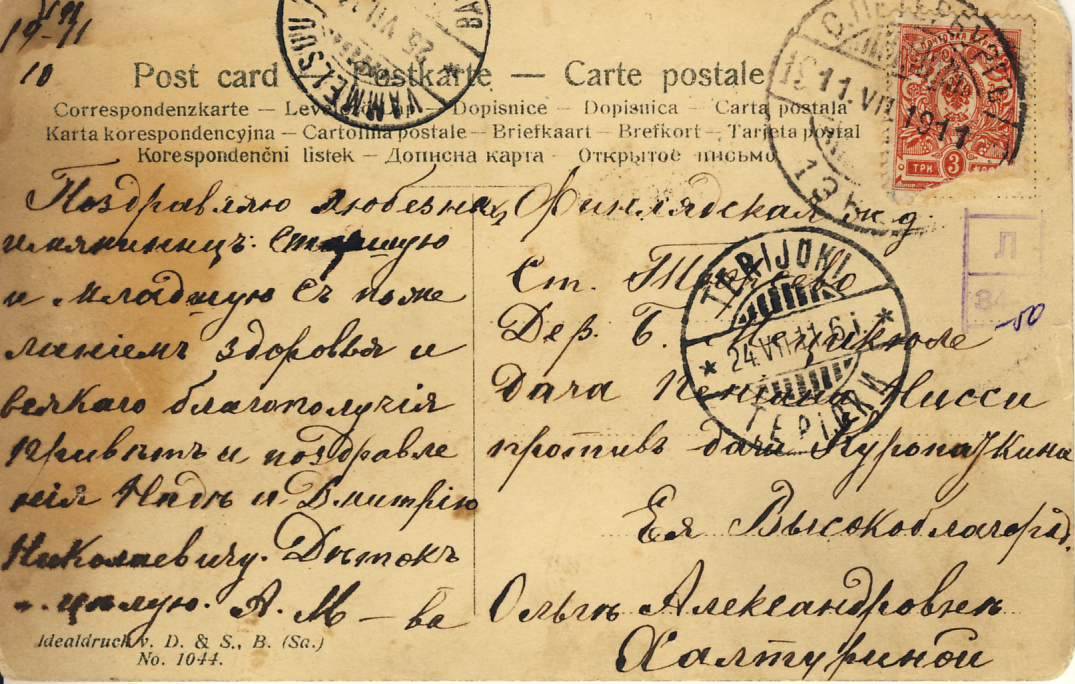 19 11/VII 11
10
Post card — Postkarte — Carte postale
Correspondenzkarte — Dopisnice — Dopisnica — Carta postala
Karta korespondencyjna — Cartolina postale — Briefkaart — Brefkort — Tarjeta postal
Korespondenční listek — Дописна карта — Открытое письмо
VAMMELSUU
25.VII.11
С.ПЕТЕРБУРГЪ
1911.VII 1911
ТРИ 3
Л
84
-50
TERIJOKI
24.VII.11.6 i.
ТЕРІОКИ
Поздравляю любезныхъ
имянинницъ. Старшую
и младшую съ поже
ланіемъ здоровья и
всякаго благополучія
Привѣтъ и поздравле
нія Надѣ и Дмитрію
Николаевичу. Дѣтокъ
цѣлую. А. М — ва
Финляндская ж. д.
Ст.
Дер. Б.
Дача Нисси
противъ дачи Куропаткина
Ея Высокоблагород.
Ольгѣ Александровнѣ
Халтуриной
Idealdruck v. D. & S., B. (Sa.)
No. 1044.